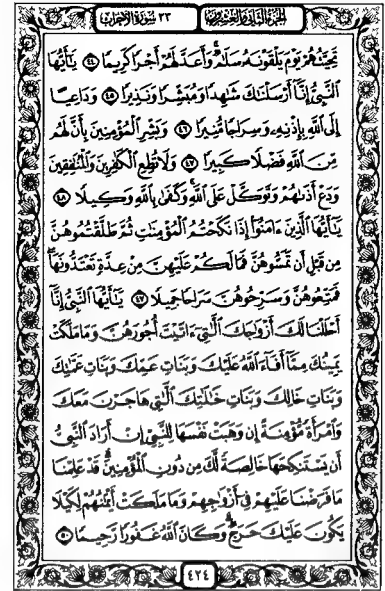 الجزء الثاني والعشرون ٣٣ سورة الأحزاب
تَحِيَّتُهُمْ يَوْمَ يَلْقَوْنَهُۥ سَلَٰمٌۚ وَأَعَدَّ لَهُمْ أَجْرًا كَرِيمًا ٤٤ يَٰٓأَيُّهَا
ٱلنَّبِىُّ إِنَّآ أَرْسَلْنَٰكَ شَٰهِدًا وَمُبَشِّرًا وَنَذِيرًا ٤٥ وَدَاعِيًا
إِلَى ٱللَّهِ بِإِذْنِهِۦ وَسِرَاجًا مُّنِيرًا ٤٦ وَبَشِّرِ ٱلْمُؤْمِنِينَ بِأَنَّ لَهُم
مِّنَ ٱللَّهِ فَضْلًا كَبِيرًا ٤٧ وَلَا تُطِعِ ٱلْكَٰفِرِينَ وَٱلْمُنَٰفِقِينَ
وَدَعْ أَذَىٰهُمْ وَتَوَكَّلْ عَلَى ٱللَّهِۚ وَكَفَىٰ بِٱللَّهِ وَكِيلًا ٤٨
يَٰٓأَيُّهَا ٱلَّذِينَ ءَامَنُوٓا۟ إِذَا نَكَحْتُمُ ٱلْمُؤْمِنَٰتِ ثُمَّ طَلَّقْتُمُوهُنَّ
مِن قَبْلِ أَن تَمَسُّوهُنَّ فَمَا لَكُمْ عَلَيْهِنَّ مِنْ عِدَّةٍ تَعْتَدُّونَهَاۖ
فَمَتِّعُوهُنَّ وَسَرِّحُوهُنَّ سَرَاحًا جَمِيلًا ٤٩ يَٰٓأَيُّهَا ٱلنَّبِىُّ إِنَّآ
أَحْلَلْنَا لَكَ أَزْوَٰجَكَ ٱلَّٰتِىٓ ءَاتَيْتَ أُجُورَهُنَّ وَمَا مَلَكَتْ
يَمِينُكَ مِمَّآ أَفَآءَ ٱللَّهُ عَلَيْكَ وَبَنَاتِ عَمِّكَ وَبَنَاتِ عَمَّٰتِكَ
وَبَنَاتِ خَالِكَ وَبَنَاتِ خَٰلَٰتِكَ ٱلَّٰتِى هَاجَرْنَ مَعَكَ
وَٱمْرَأَةً مُّؤْمِنَةً إِن وَهَبَتْ نَفْسَهَا لِلنَّبِىِّ إِنْ أَرَادَ ٱلنَّبِىُّ
أَن يَسْتَنكِحَهَا خَالِصَةً لَّكَ مِن دُونِ ٱلْمُؤْمِنِينَۗ قَدْ عَلِمْنَا
مَا فَرَضْنَا عَلَيْهِمْ فِىٓ أَزْوَٰجِهِمْ وَمَا مَلَكَتْ أَيْمَٰنُهُمْ لِكَيْلَا
يَكُونَ عَلَيْكَ حَرَجٌۗ وَكَانَ ٱللَّهُ غَفُورًا رَّحِيمًا ٥٠
٤٢٤